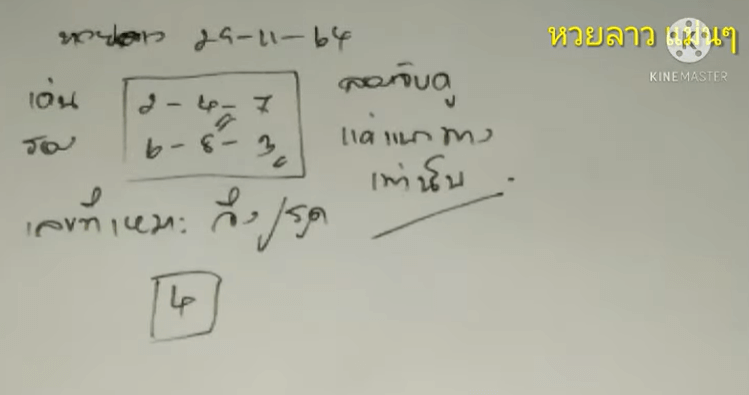 หวยลาว แม่นๆ
KINEMASTER
หวยลาว 29-11-64
เด่น 2-4-7 ลองจับดู
รอง 6-8-3 แค่แนวทาง
เท่านั้น
เลขที่เหมาะ วิ่ง/รูด
4